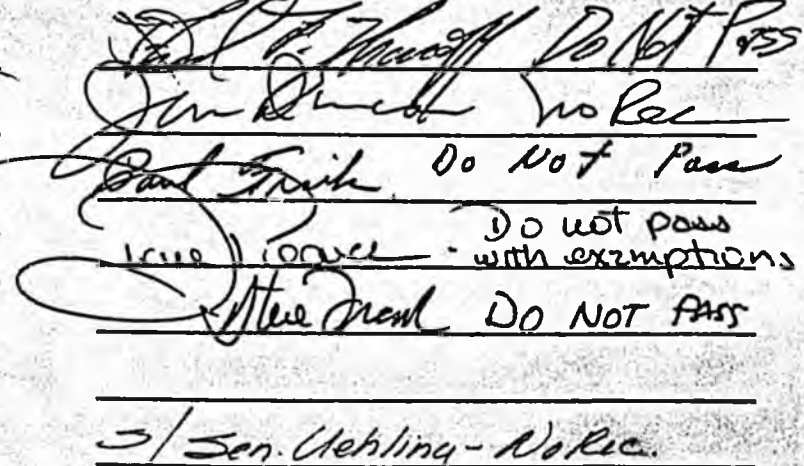 Do Not Pass
Jim Duncan No Rec
Do Not Pass
Do not pass
with exemptions
Steve Frank DO NOT PASS
S/ Sen. Uehling - No Rec.